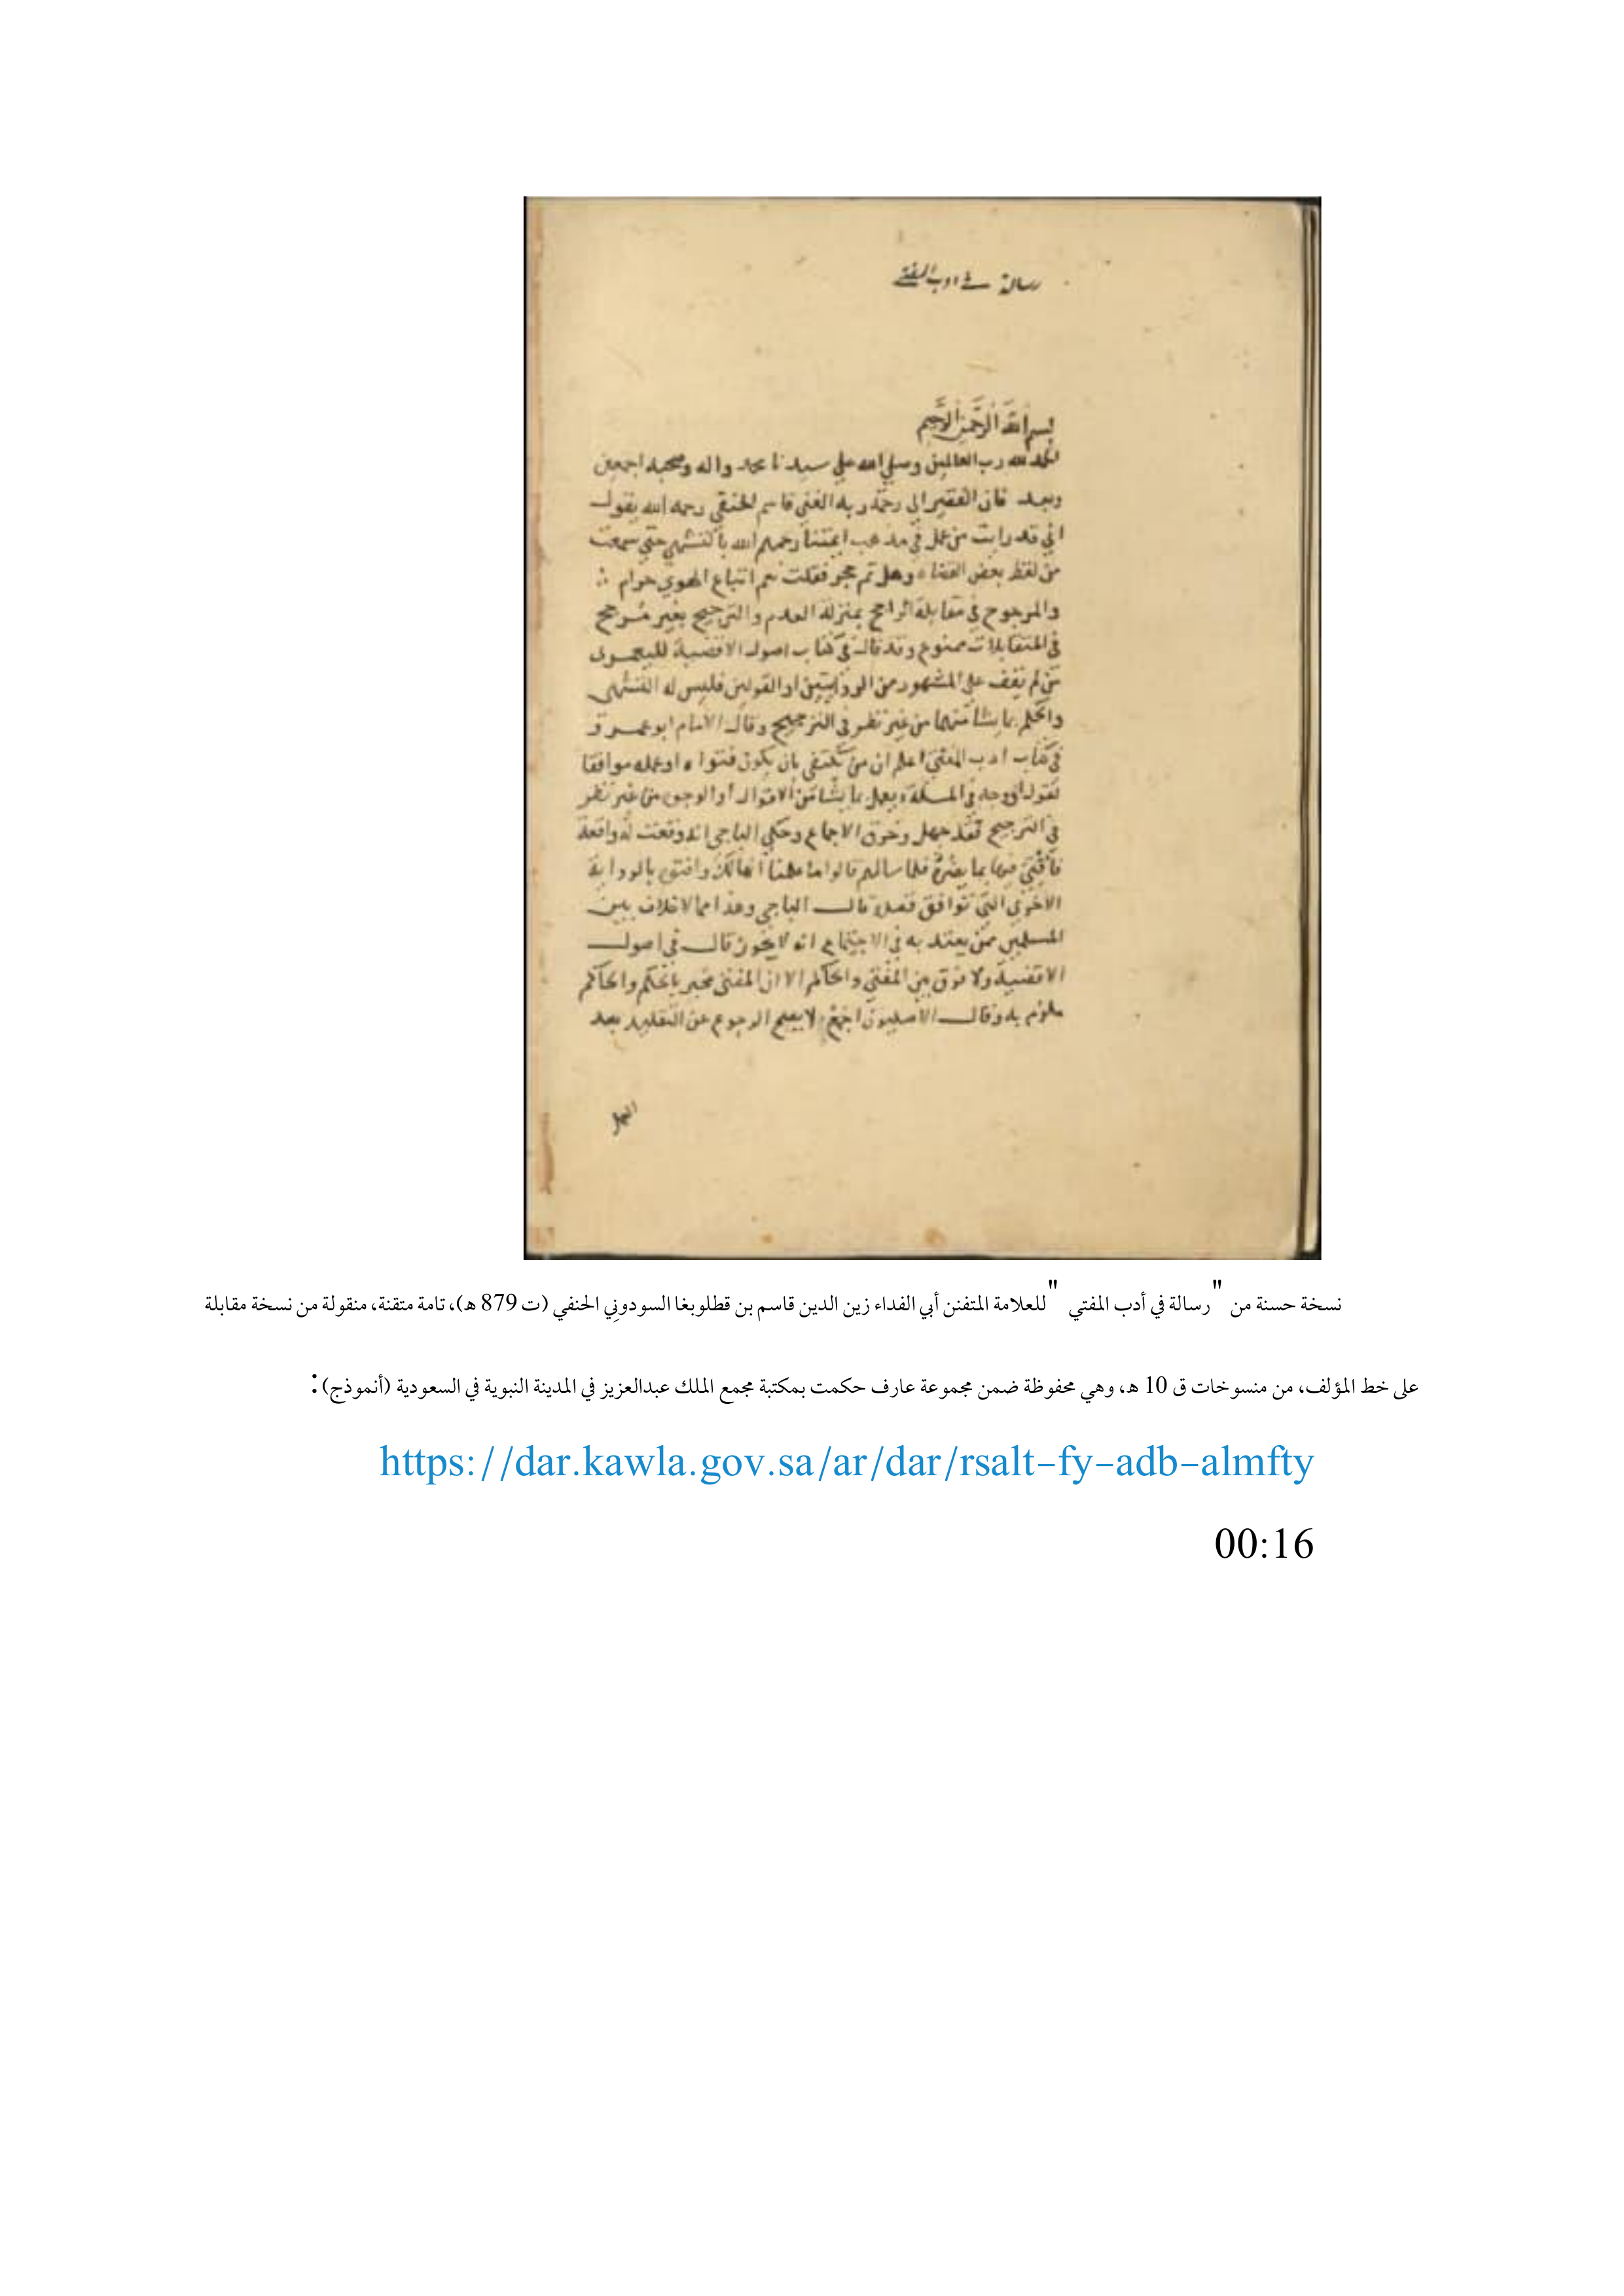 رسالة في ادب المفتي
بسم الله الرحمن الرحيم
الحمد لله رب العالمين وصلي الله علي سيدنا محمد واله وصحبه اجمعين
وبعد فان الفقير الي رحمة ربه الغني قاسم الحنفي رحمه الله يقول
اني قد رايت من عمل في مذهب ايمتنا رحمهم الله بالتشهي حتي سمعت
من لفظ بعض القضاه وهل ثم حجر فقلت نعم اتباع الهوي حرام
والمرجوح في مقابلة الراجح بمنزلة العدم والترجيح بغير مرجح
في المتقابلات ممنوع وقد قال في كتاب اصول الاقضية لليعمري
من لم يقف علي المشهور من الروايتين او القولين فليس له التشهي
والحكم بما يشا منهما من غير نظر في الترجيح وقال الامام ابو عمرو
في كتاب ادب المفتي اعلم ان من يكتفي بان يكون فتواه او عمله موافقا
لقول او وجه في المسئلة ويعمل بما يشا من الاقوال او الوجوه من غير نظر
في الترجيح فقد جهل وخرق الاجماع وحكي الباجي انه وقعت له واقعة
فافتي فيها بما يضره فلما سالهم قالوا ما علمنا انها لك وافتوه بالرواية
الاخري التي توافق قصده قال الباجي وهذا مما لا خلاف بين
المسلمين ممن يعتد به في الاجماع انه لا يجوز قال في اصول
الاقضية ولا فرق بين المفتي والحاكم الا ان المفتي مخبر بالحكم والحاكم
ملزم به وقال الاصليون اجمع لا يصح الرجوع عن التقليد بعد
العمل
نسخة حسنة من "رسالة في أدب المفتي" للعلامة المتفنن أبي الفداء زين الدين قاسم بن قطلوبغا السودوني الحنفي (ت 879 هـ)، تامة متقنة، منقولة من نسخة مقابلة
على خط المؤلف، من منسوخات ق 10 هـ، وهي محفوظة ضمن مجموعة عارف حكمت بمكتبة مجمع الملك عبدالعزيز في المدينة النبوية في السعودية (أنموذج):
https://dar.kawla.gov.sa/ar/dar/rsalt-fy-adb-almfty
00:16